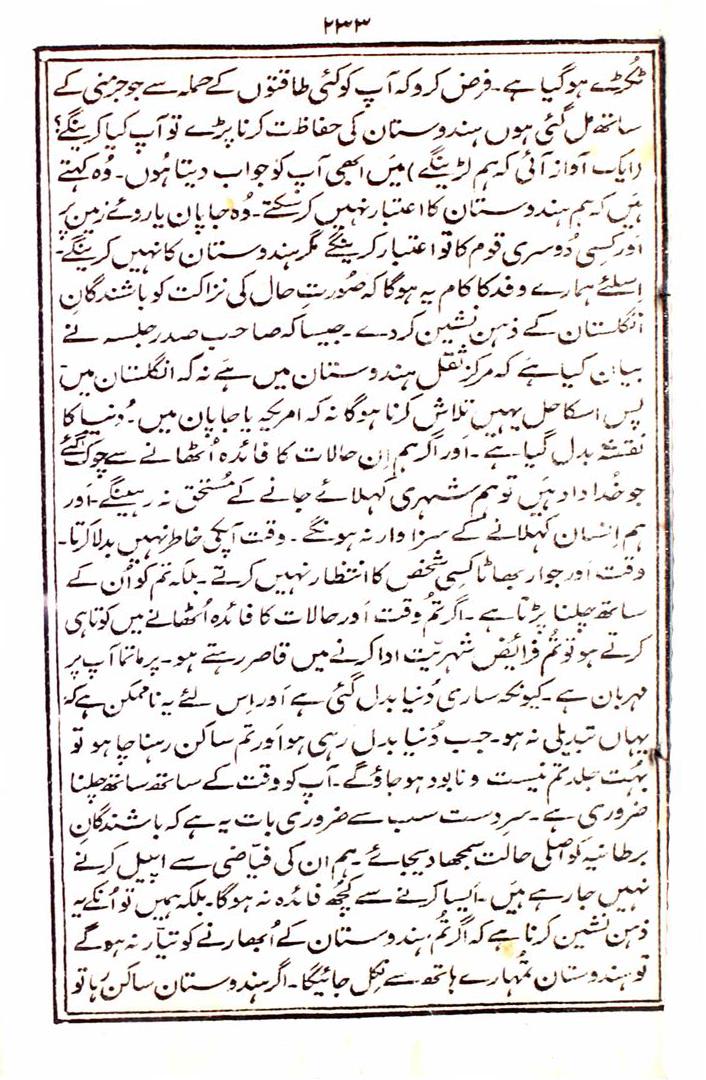 ۲۳۳
ٹکڑے ہو گیا ہے۔ فرض کرو کہ آپ کو کئی طاقتوں کے حملہ سے جو جرمنی کے
ساتھ مل گئی ہوں ہندوستان کی حفاظت کرنا پڑے تو آپ کیا کرینگے؟
(ایک آواز آئی کہ ہم لڑینگے) میں ابھی آپ کو جواب دیتا ہوں۔ وہ کہتے
ہیں کہ ہم ہندوستان کا اعتبار نہیں کر سکتے۔ وہ جاپان یا روئے زمین پر
اور کسی دوسری قوم کا تو اعتبار کرینگے مگر ہندوستان کا نہیں کرینگے۔
اسلئے ہمارے وفد کا کام یہ ہوگا کہ صورتِ حال کی نزاکت کو باشندگانِ
انگلستان کے ذہن نشین کر دے۔ جیسا کہ صاحب صدر جلسہ نے
بیان کیا ہے کہ مرکز ثقل ہندوستان میں ہے نہ کہ انگلستان میں
پس اسکا حل یہیں تلاش کرنا ہوگا نہ کہ امریکہ یا جاپان میں۔ دُنیا کا
نقشہ بدل گیا ہے۔ اور اگر ہم اِن حالات کا فائدہ اُٹھانے سے چوک گئے
جو خُداداد ہیں تو ہم شہری کہلائے جانے کے مُستحق نہ رہینگے۔ اور
ہم اِنسان کہلانے کے سزاوار نہ ہونگے۔ وقت آپکی خاطر نہیں بدلا کرتا۔
وقت اور جوار بھاٹا کسِی شخص کا انتظار نہیں کرتے۔ بلکہ تم کو اُن کے
ساتھ چلنا پڑتا ہے۔ اگر تُم وقت اور حالات کا فائدہ اُٹھانے میں کوتاہی
کرتے ہو تو تُم فرائض شہریّت ادا کرنے میں قاصر رہتے ہو۔ پرماتما آپ پر
مہربان ہے۔ کیونکہ ساری دُنیا بدل گئی ہے اور اِس لئے یہ ناممکن ہے کہ
یہاں تبدیلی نہ ہو۔ جب دُنیا بدل رہی ہو اور تم ساکن رہنا چاہو تو
بہُت جلد تم نیست و نابود ہو جاؤ گے۔ آپ کو وقت کے ساتھ ساتھ چلنا
ضروری ہے۔ سرِدست سب سے ضروری بات یہ ہے کہ باشندگانِ
برطانیہ کو اصلی حالت سمجھا دیجائے۔ ہم ان کی فیّاضی سے اپیل کرنے
نہیں جا رہے ہیں۔ ایسا کرنے سے کچُھ فائدہ نہ ہوگا۔ بلکہ ہمیں تو اُنکے یہ
ذہن نشین کرنا ہے کہ اگر تُم ہندوستان کے اُبھارنے کو تیّار نہ ہو گے
تو ہندوستان تمُہارے ہاتھ سے نِکل جائیگا۔ اگر ہندوستان ساکن رہا تو